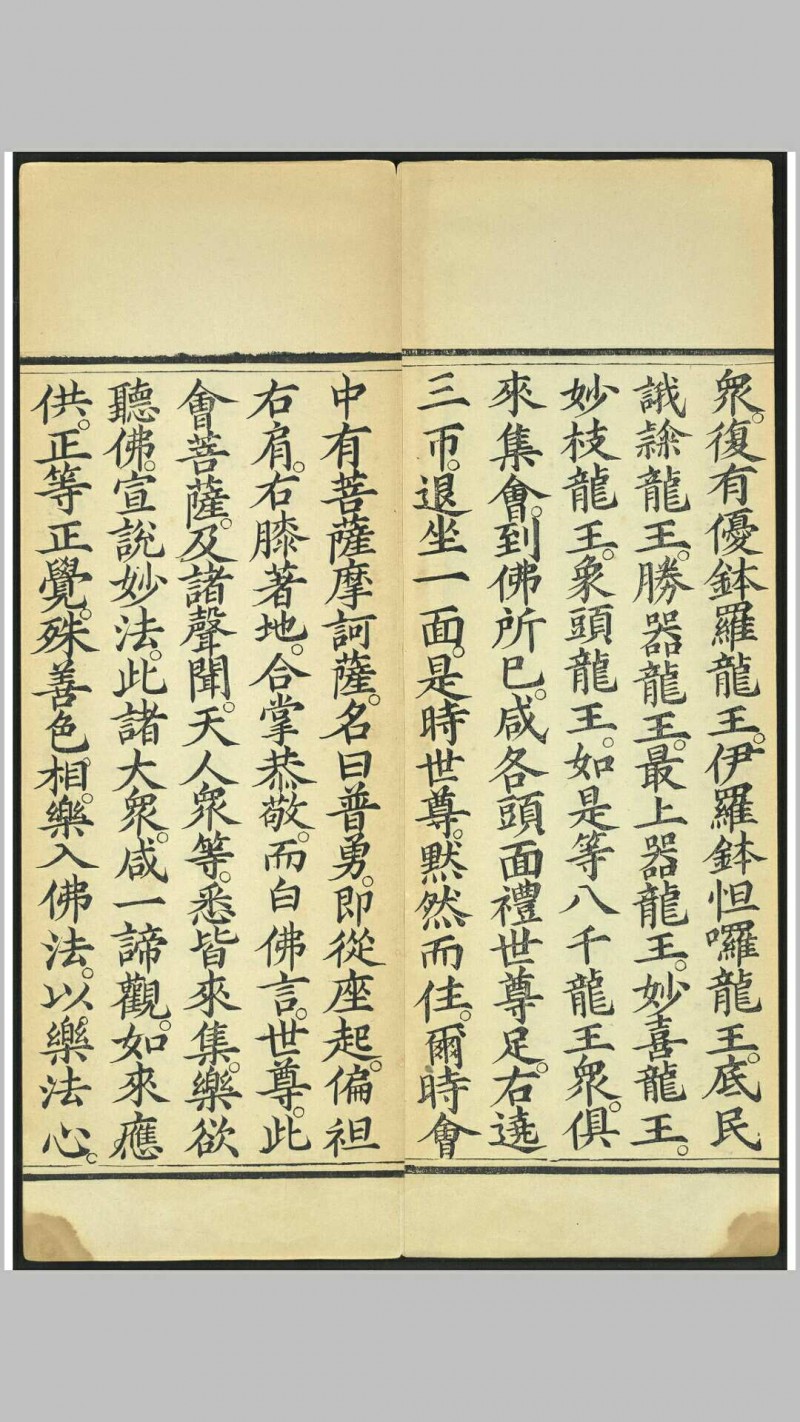 眾。復有優鉢羅龍王。伊羅鉢怛囉龍王。底民
誐隷龍王。勝器龍王。最上器龍王。妙喜龍王。
妙枝龍王。象頭龍王。如是等八千龍王眾。俱
來集會。到佛所已。咸各頭面禮世尊足。右遶
三帀。退坐一面。是時世尊。黙然而住。爾時會
中有菩薩摩訶薩。名曰普勇。即從座起。偏袒
右肩。右膝著地。合掌恭敬。而白佛言。世尊。此
會菩薩。及諸聲聞。天人眾等。悉皆來集。樂欲
聽佛。宣說妙法。此諸大眾。咸一諦觀。如來應
供。正等正覺。殊善色。相。樂入佛法。以。樂法心。